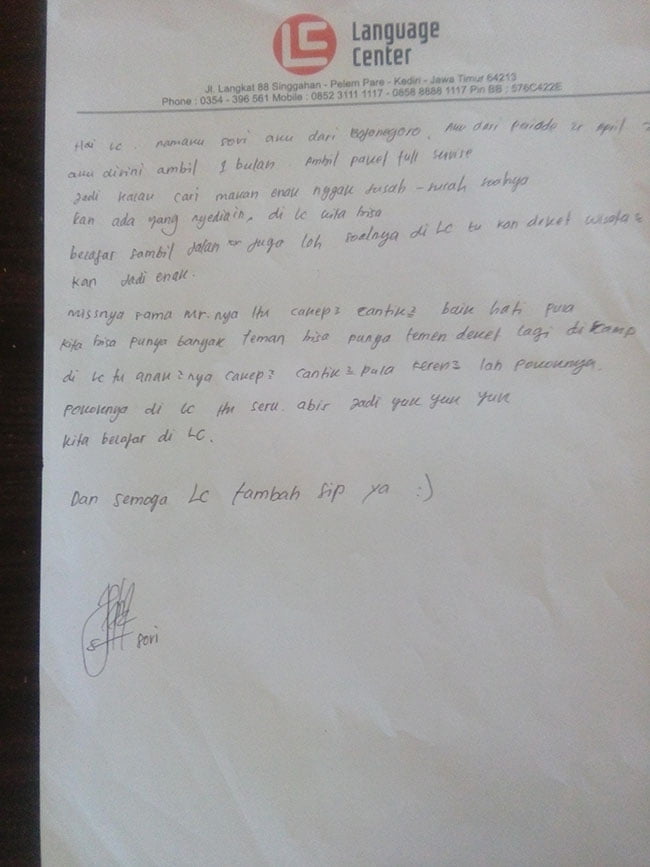 LC
Language
Center
Jl. Langkat 88 Singgahan - Pelem Pare - Kediri - Jawa Timur 64213
Phone : 0354 - 396 561 Mobile : 0852 3111 1117 - 0858 8888 1117 Pin BB : 576C422E
Hai LC. namaku sovi aku dari Bojonegoro. Aku dari periode 25 April
aku disini ambil 1 bulan. Ambil paket full servise
Jadi kalau cari makan enak nggak susah - susah soalnya
kan ada yang nyediain. di LC kita bisa
belajar sambil jalan2 juga loh soalnya di LC tu kan deket wisata2
kan jadi enak.
missnya sama Mr.nya itu cakep2 cantik2 baik hati pula
kita bisa punya banyak teman bisa punya temen deket lagi di kamp
di LC tu anak2nya cakep2 cantik2 pula keren2 lah pokoknya.
pokoknya di LC itu seru abis jadi yuk yuk yuk
kita belajar di LC.
Dan semoga LC tambah sip ya :)
sovi